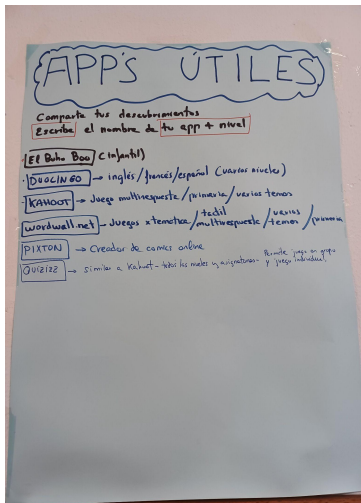 APP'S ÚTILES
Comparte tus descubrimientos
Escribe el nombre de tu app + nivel
· El Buho Boo (infantil)
· DUOLINGO → inglés/francés/español (varios niveles)
· KAHOOT → Juego multirespuesta/primaria/varios temas
wordwall.net → Juegos x temática/táctil/multirespuesta/varios temas/primaria
PIXTON → Creador de comics online
QUIZIZZ → similar a Kahoot - todos los niveles y asignaturas - Permite juego en grupo y juego individual.